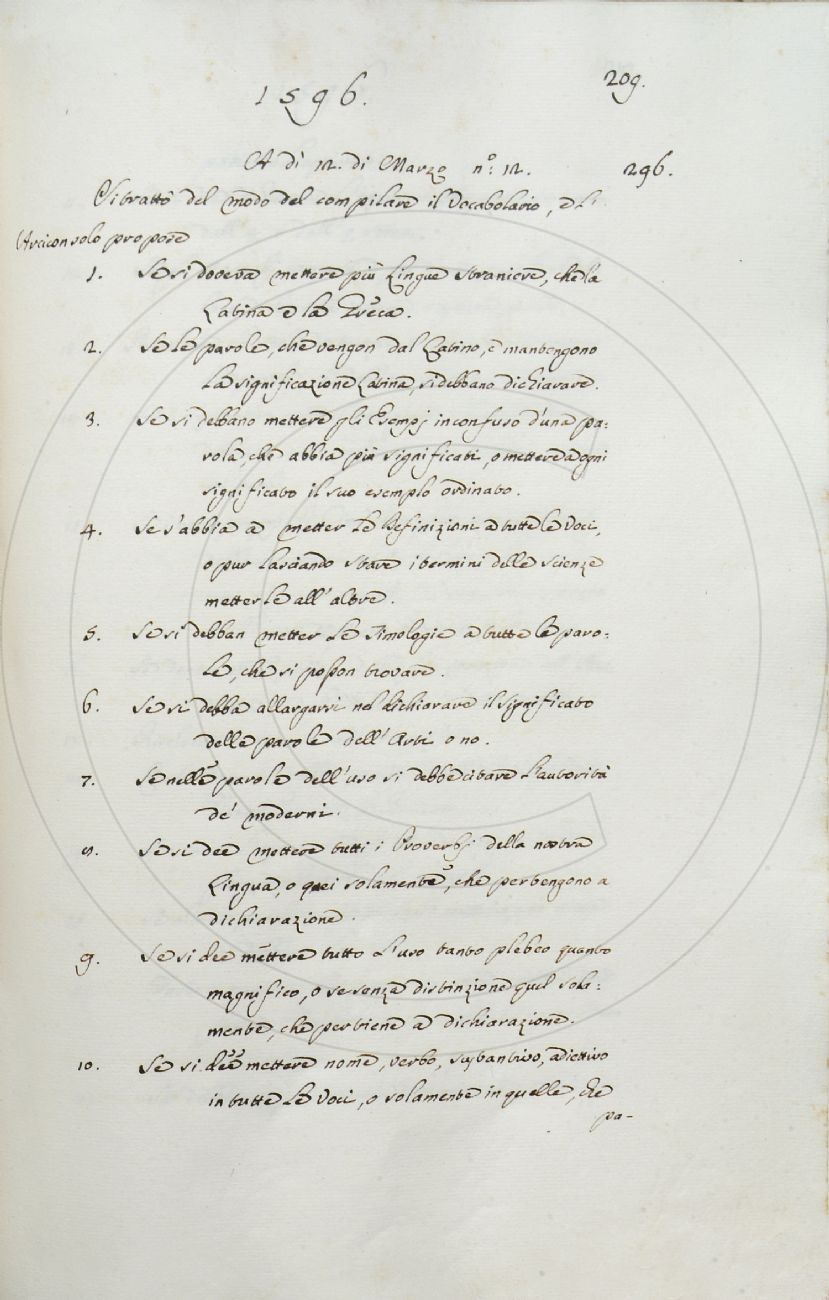 209.
1596.
A dì 12. di Marzo n.° 12. 296.
Si trattò del modo del compilare il Vocabolario, e l'
Arciconsolo propose
1. Se si doveva mettere più Lingue straniere, che la
Latina e la Greca.
2. Se le parole, che vengon dal Latino, e mantengono
la significazione Latina, si debbano dichiarare.
3. Se si debbano mettere gli Esempj in confuso d'una pa:
rola, che abbia più significati, o mettere a ogni
significato il suo esemplo ordinato.
4. Se s'abbia a metter le Definizioni a tutte le Voci,
o pur lasciando stare i termini delle scienze
metterle all'altre.
5. Se si debban metter le Etimologie a tutte le paro:
le, che si posson trovare.
6. Se si debba allargarsi nel dichiarare il significato
delle parole dell'Arti o no.
7. Se nelle parole dell'uso si debbe citare l'autorità
de' moderni.
8. Se si dee mettere tutti i Proverbj della nostra
Lingua, o quei solamente, che pertengono a
dichiarazione.
9. Se si dee mettere tutto l'uso tanto plebeo quanto
magnifico, o se senza distinzione quel sola:
mente, che pertiene a dichiarazione.
10. Se si dee mettere nome, verbo, sustantivo, adiettivo
in tutte le Voci, o solamente in quelle, che
pa-